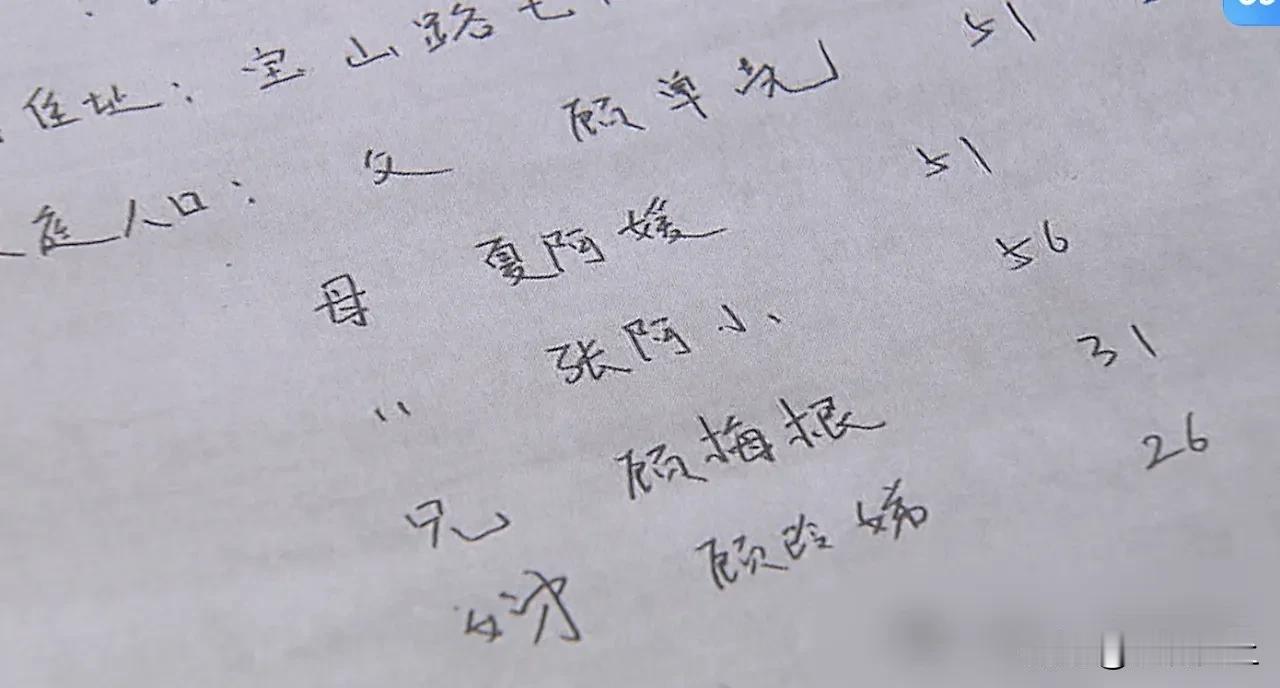 住址：宝山路七
庭人口：父 顾单说 51
母 夏阿媛 51
〃 张阿小 56
兄 顾梅根 31
嫂 顾玲娣 26